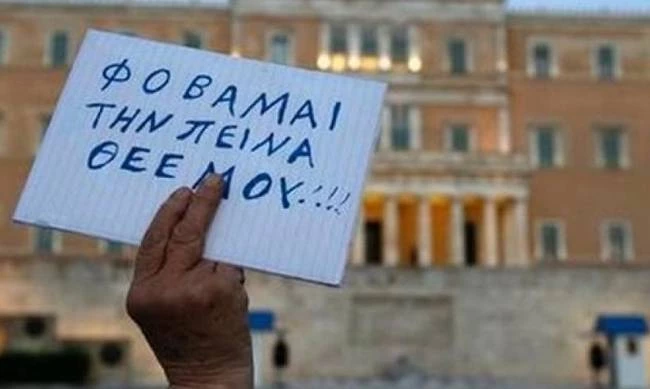 ΦΟΒΑΜΑΙ
ΤΗΝ ΠΕΙΝΑ
ΘΕΕ ΜΟΥ!!!